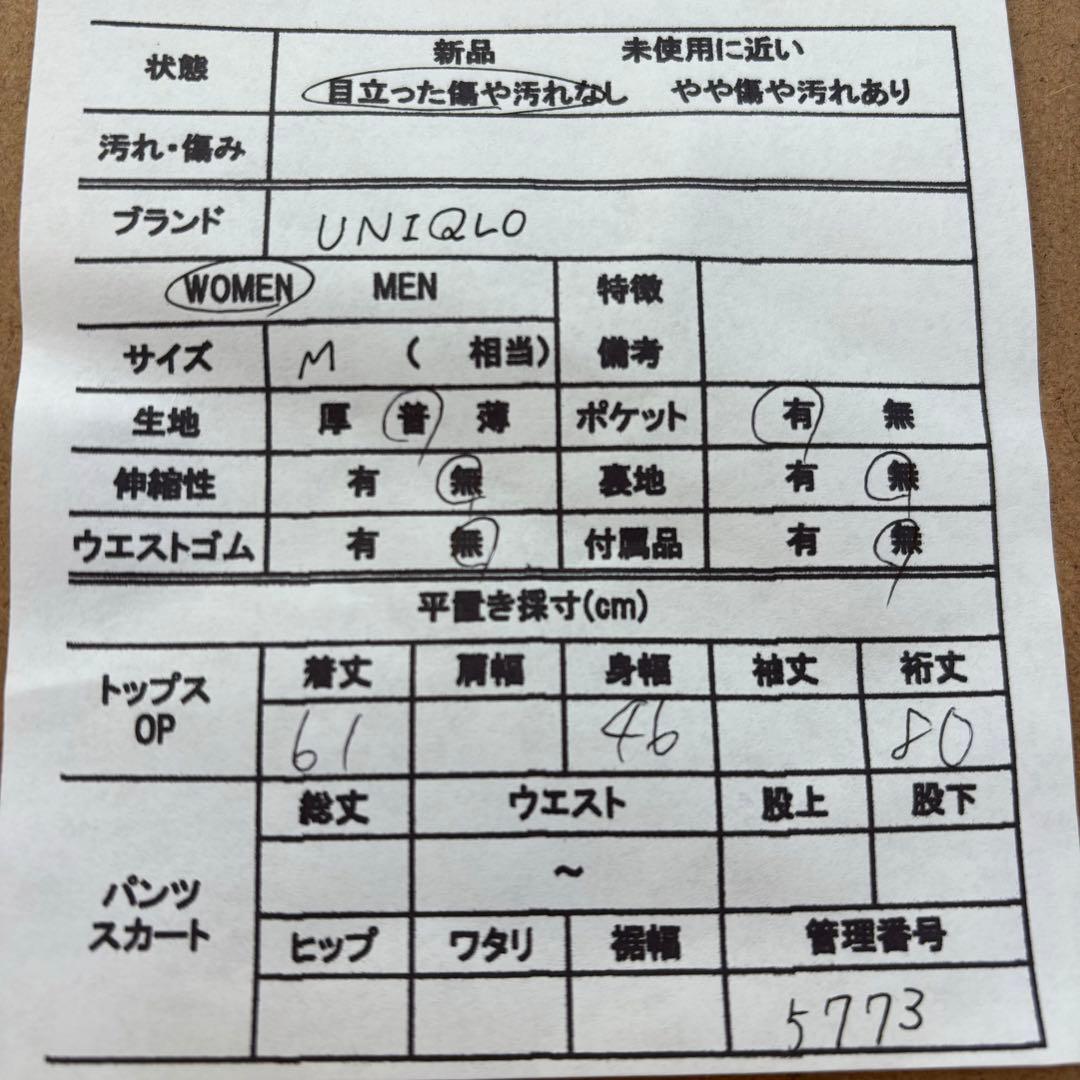 状態 新品 未使用に近い
目立った傷や汚れなし やや傷や汚れあり
汚れ・傷み
ブランド UNIQLO
WOMEN MEN 特徴
サイズ M ( 相当) 備考
生地 厚 普 薄 ポケット 有 無
伸縮性 有 無 裏地 有 無
ウエストゴム 有 無 付属品 有 無
平置き採寸(cm)
トップス OP 着丈 肩幅 身幅 袖丈 裄丈
61 46 80
パンツ スカート 総丈 ウエスト 股上 股下
~
ヒップ ワタリ 裾幅 管理番号
5773